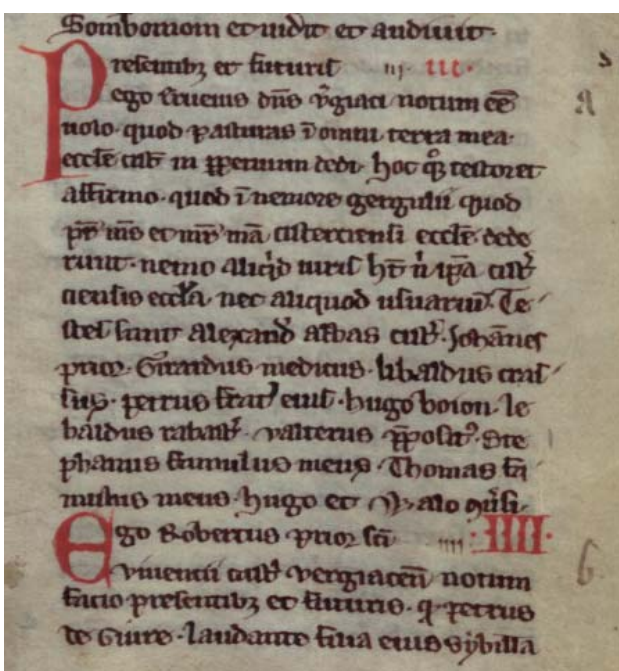 Sombornom et uidit et audiuit.
Presentibꝫ et futuris iij III.
ego Erueius dn̄s v̄giaci notum eē̄
uolo. quod pasturas ī omni terra mea.
eccłe cist̄ in ꝑpetuum dedi. hoc qͦꝫ testor et
affirmo. quod ī nemore gergulii quod
pr̄ ms̄ et mr̄ mā cisterciensi eccłe dede
runt. nemo aliqͥd iuris ht̄ ń ip̄a cist̾
ciensis eccła. nec aliquod usuariū. Te
stes sunt Alexand̾ abbas cist̾. Joħānes
prior. Girardus medicus. libaldus cras
sus. petrus frat̾ eius. hugo boion. le
baldus rabast̾. valterus p̄posit᷒. Ste
phanus famulus meus. Thomas fa
mulus meus. hugo et Walo
Ego Robertus prior sc̄i iiij. IIII.
viuentii castͥ vergiacen̄ notum
facio presentibꝫ et futuris. q̄ petrus
de Giure. laudante filia eius Sybilla
a
6